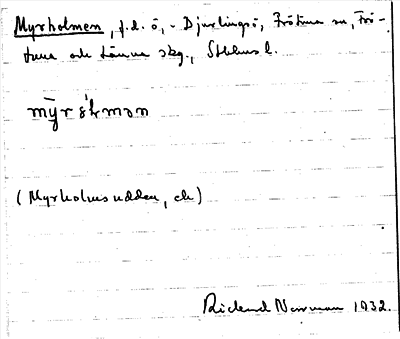 Myrholmen, f.d. ö, - Djurlingsö, Frötuna sn, Frö-
tuna och Länna skg., Sthlms l.
mȳrólmən
(Myrholmsudden, ek)
Rickard Norrman 1932.